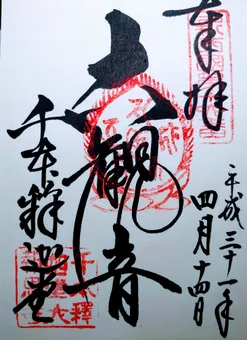 奉拝
平成三十一年
四月十四日
六観音
千本釋迦堂